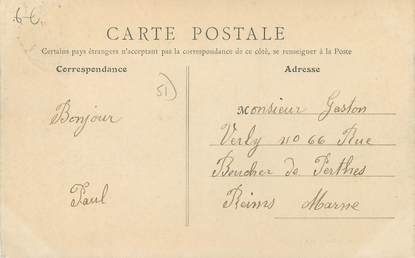 6-6.
CARTE POSTALE
Certains pays étrangers n'acceptant pas la correspondance de ce côté, se renseigner à la Poste
Correspondance
51)
Bonjour
Paul
Adresse
Monsieur Gaston
Verly no 66 Rue
Boucher de Perthes
Reims Marne